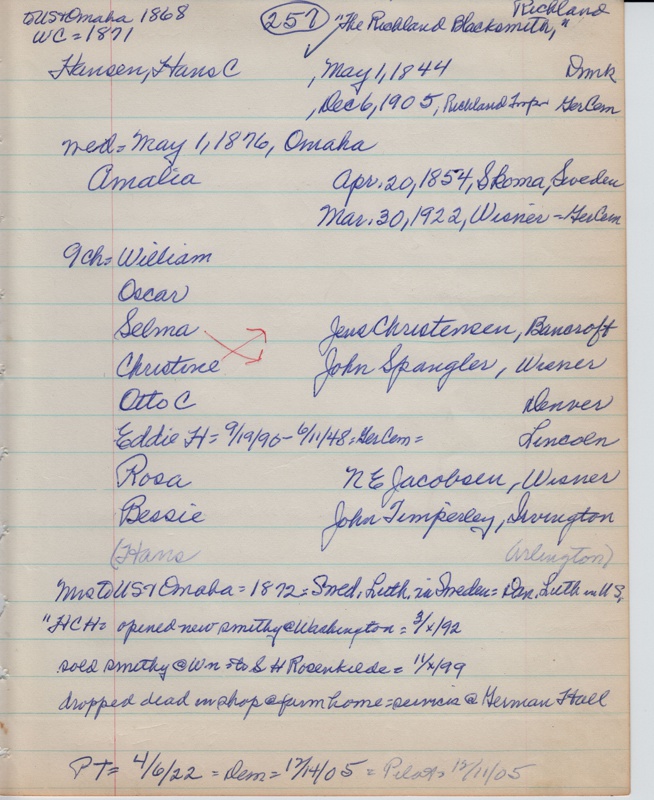 to US & Omaha 1868
257
Richland
WC = 1871
"The Richland Blacksmith,"
Hansen, Hans C , May 1, 1844 Dmrk
, Dec 6, 1905, Richland Twp - Ger Cem
wed = May 1, 1876, Omaha
Amalia Apr. 20, 1854, Skoma, Sweden
Mar. 30, 1922, Wisner = Ger Cem
9 ch = William
Oscar
Selma Jens Christensen, Bancroft
Christine John Spangler, Wisner
Otto C Denver
Eddie H = 9/19/90 - 6/11/48 = Ger Cem = Lincoln
Rosa N E Jacobsen, Wisner
Bessie John Timperley, Irvington
(Hans Arlington)
Mrs to US & Omaha = 1872 = Swed. Luth. in Sweden = Dan. Luth in U S,
"HCH = opened new smithy @ Washington = 3/x/92
sold smithy @ Wn = to S H Rosenkilde = 11/x/99
dropped dead in shop @ farm home = services @ German Hall
PT = 4/6/22 = Dem = 12/14/05 = Pilot = 12/11/05